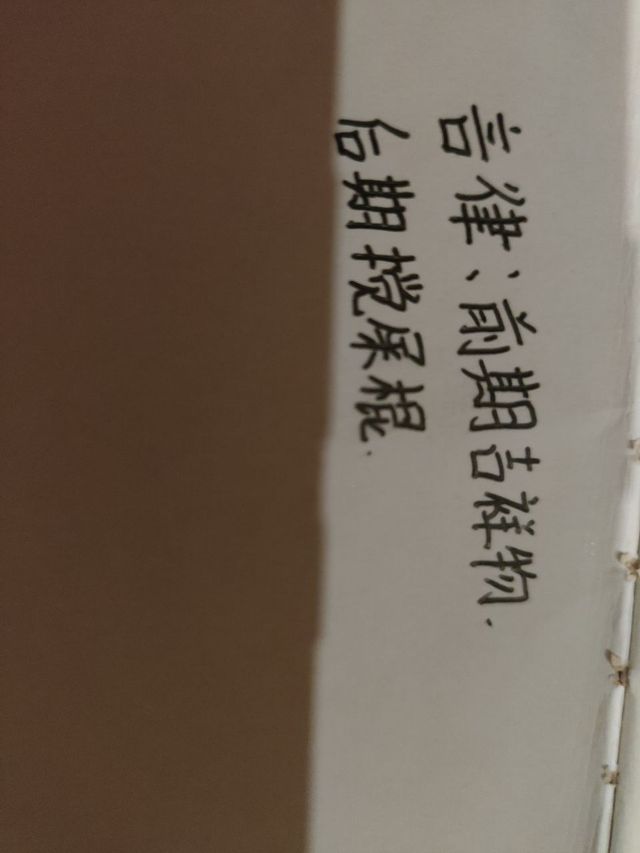 言律：前期吉祥物.
后期搅屎棍.